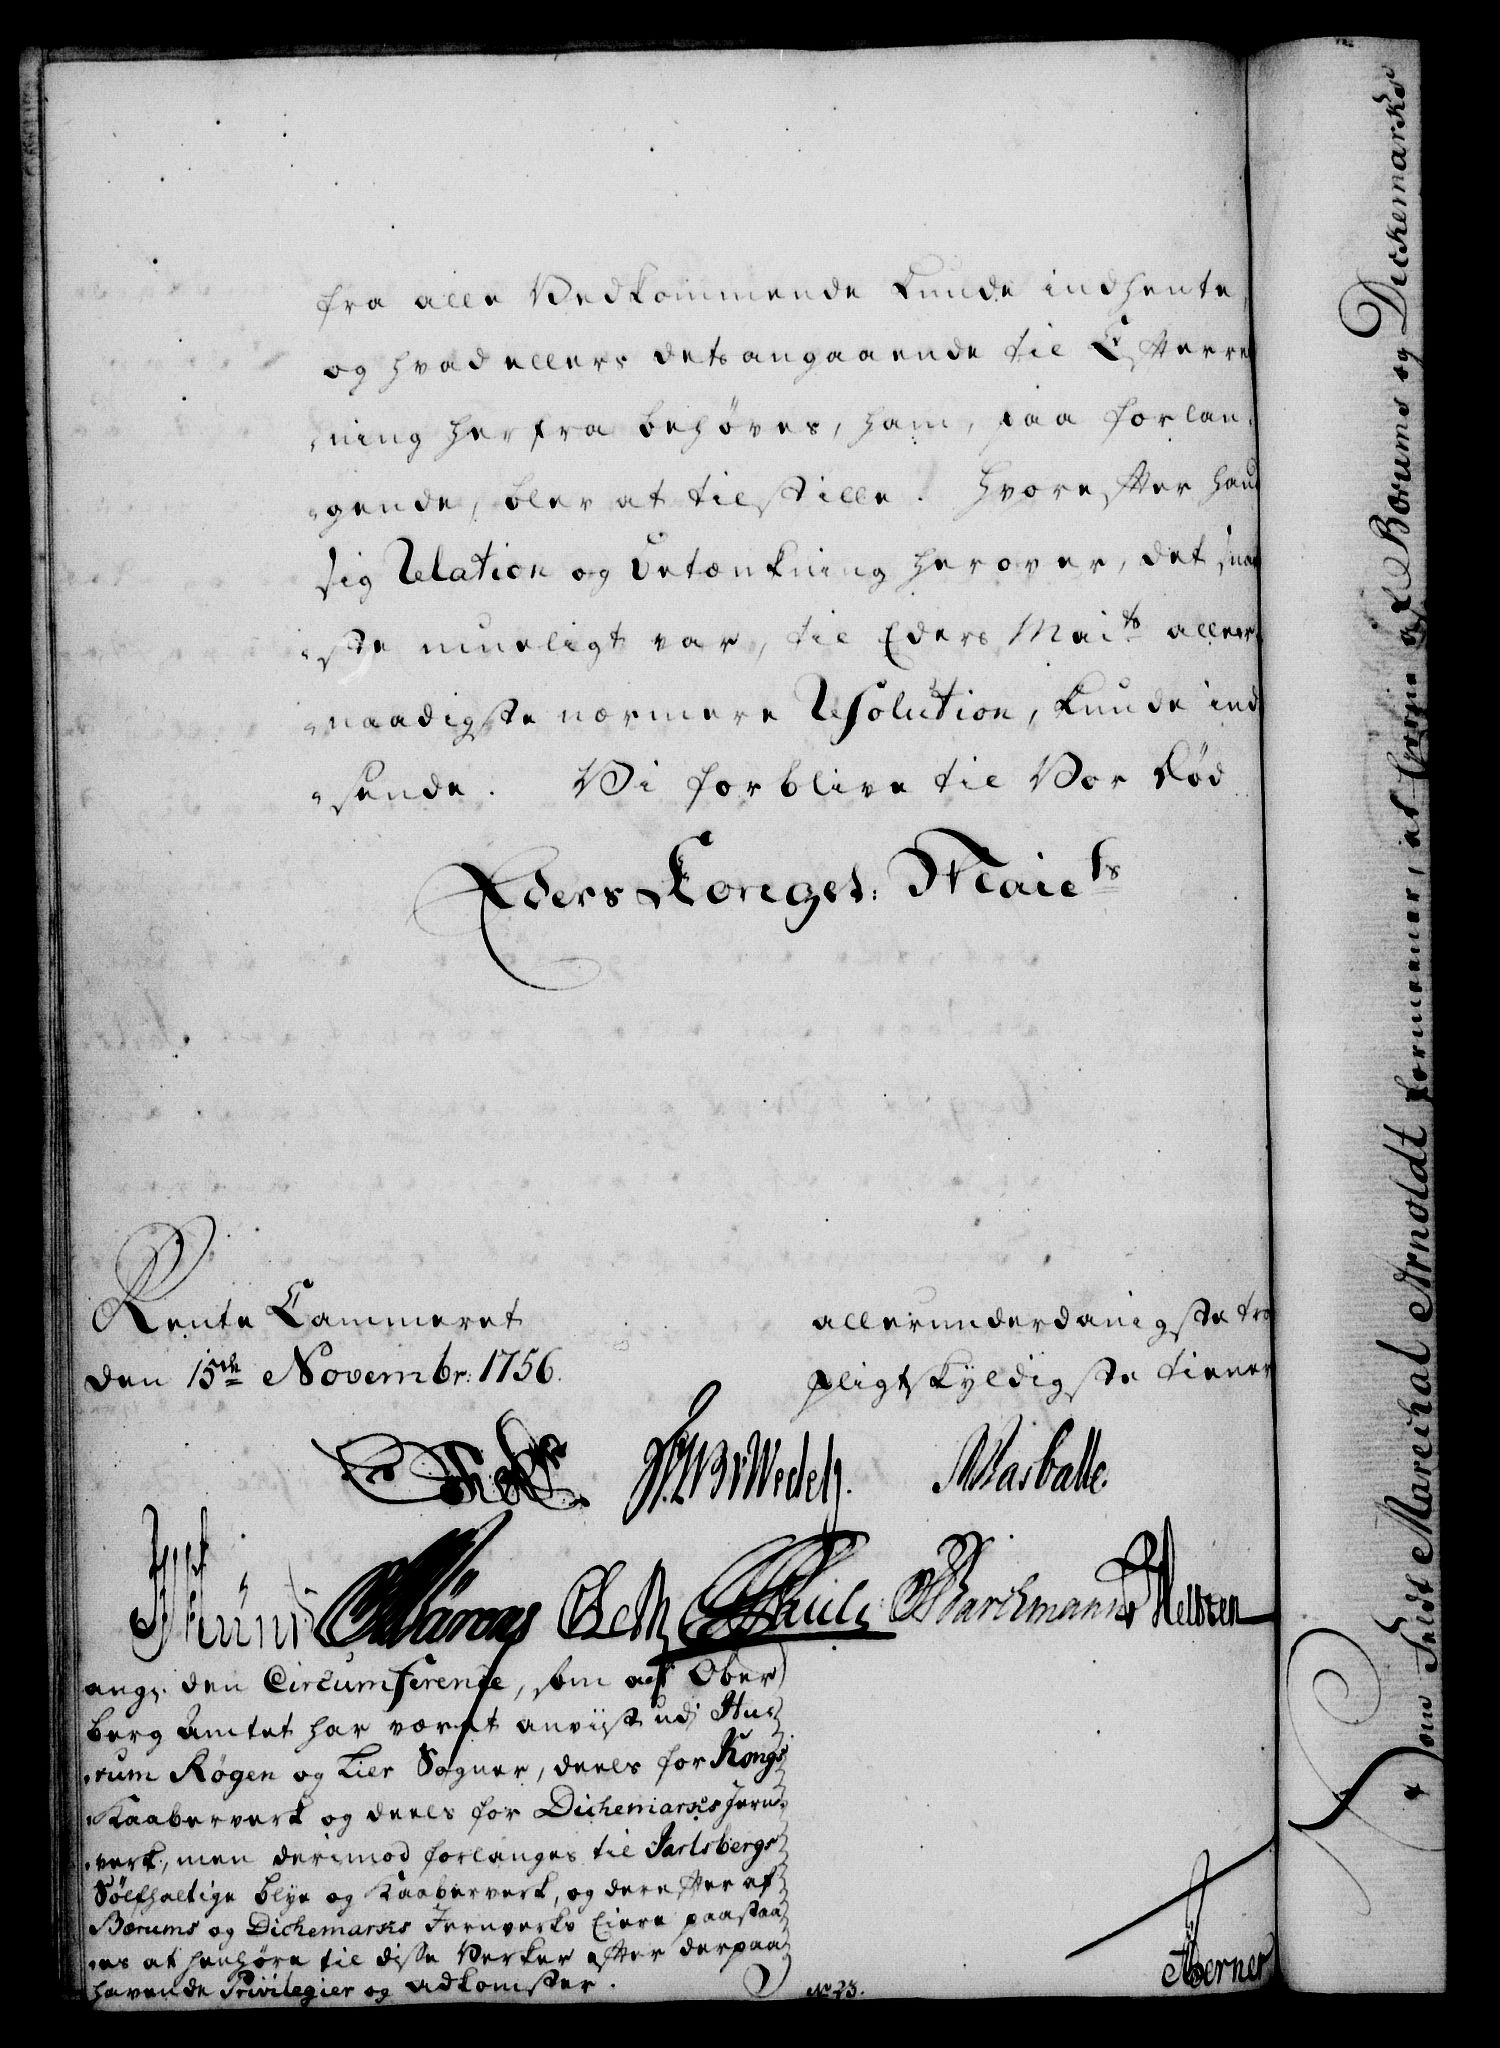 fra alle Vedkommende kunde indhente,
og hvad ellers dets angaaende til Efterret
ning herfra behøves, ham, paa forlan,
gende, blev at tilstille. Hvorefter hand
sig Relation og betænkning herover, det snar
ste mueligt var, til Eders Mai:ts allern
naadigste nærmere Resolution, kunde ind
sende. Vi forblive til Vor død
Eders Kongel: Maiets
Rente Cammeret
den 15de Novembr: 1756.
allerunderdanigste tro
pligtskyldigste tiener
Wedel
Barchmann
Nelssen
ang: den Circumference, som af Ober
berg Amtet har været anviist udj Hu
rum Røgen og Lier Sogner, deels for Kongs
Kaaberverk og deels for Dichemarks Jern
verk, men derimod forlanges til Jarlsbergs
Sølfholtige blye og Kaaberverk, og derefter af
Bærums og Dichemarks Jernverks Eiere paastaa
es at henhøre til disse Verker efter derpaa
havende Privilegier og Adkomster.
No 23.
Berner
som Feldt Mareichal Arnoldt formeener, at Eierne af Bærums og Dichemarks